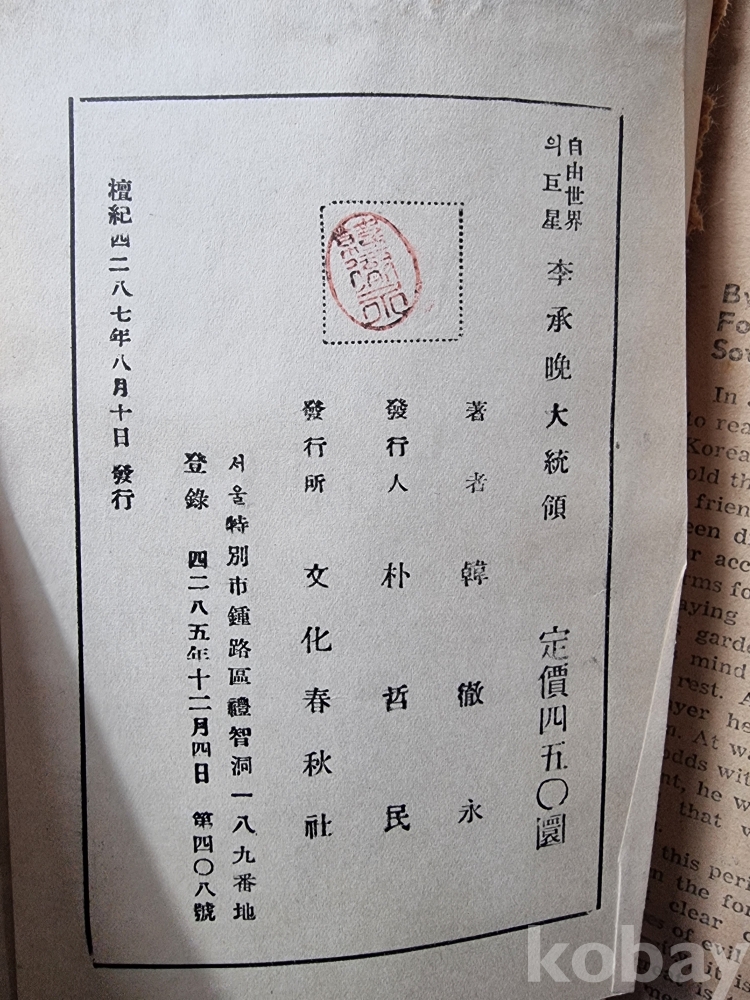 自由世界
의巨星 李承晩大統領 定價四五〇圜
著者 韓徹永
發行人 朴哲民
發行所 文化春秋社
서울特別市鍾路區禮智洞一八九番地
登錄 四二八五年十二月四日 第四〇八號
檀紀四二八七年八月十日 發行
By
Fo
Sov
In
to rea
Korea
old th
frien
een di
r acc
rms fo
aying
garde
mind
rest. A
yer he
n. At wa
odds wit
nt, he w
that w
this peri
n the for
clear c
es of evil
kobay